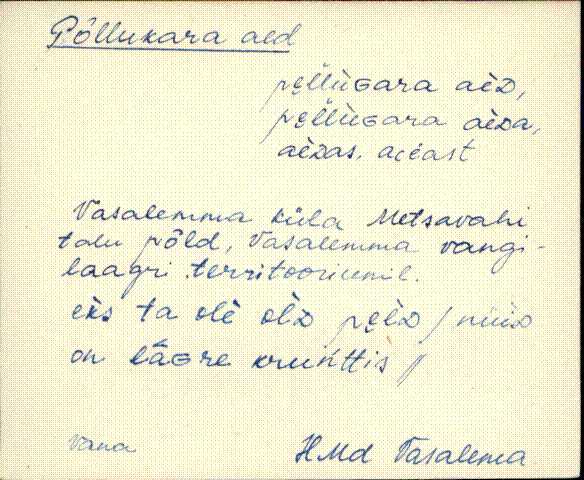 Põllukara aed
pe̮llùɢara aèᴅ,
pe̮llùɢara aèᴅa,
aèᴅas. aèast
Vasalemma küla Metsavahi
talu põld, Vasalemma vangi-
laagri territooriumil.
eks ta olè olᴅ pe̮lᴅ / nüüᴅ
on làɢre kruńttis //
Vana
HMd Vasalema